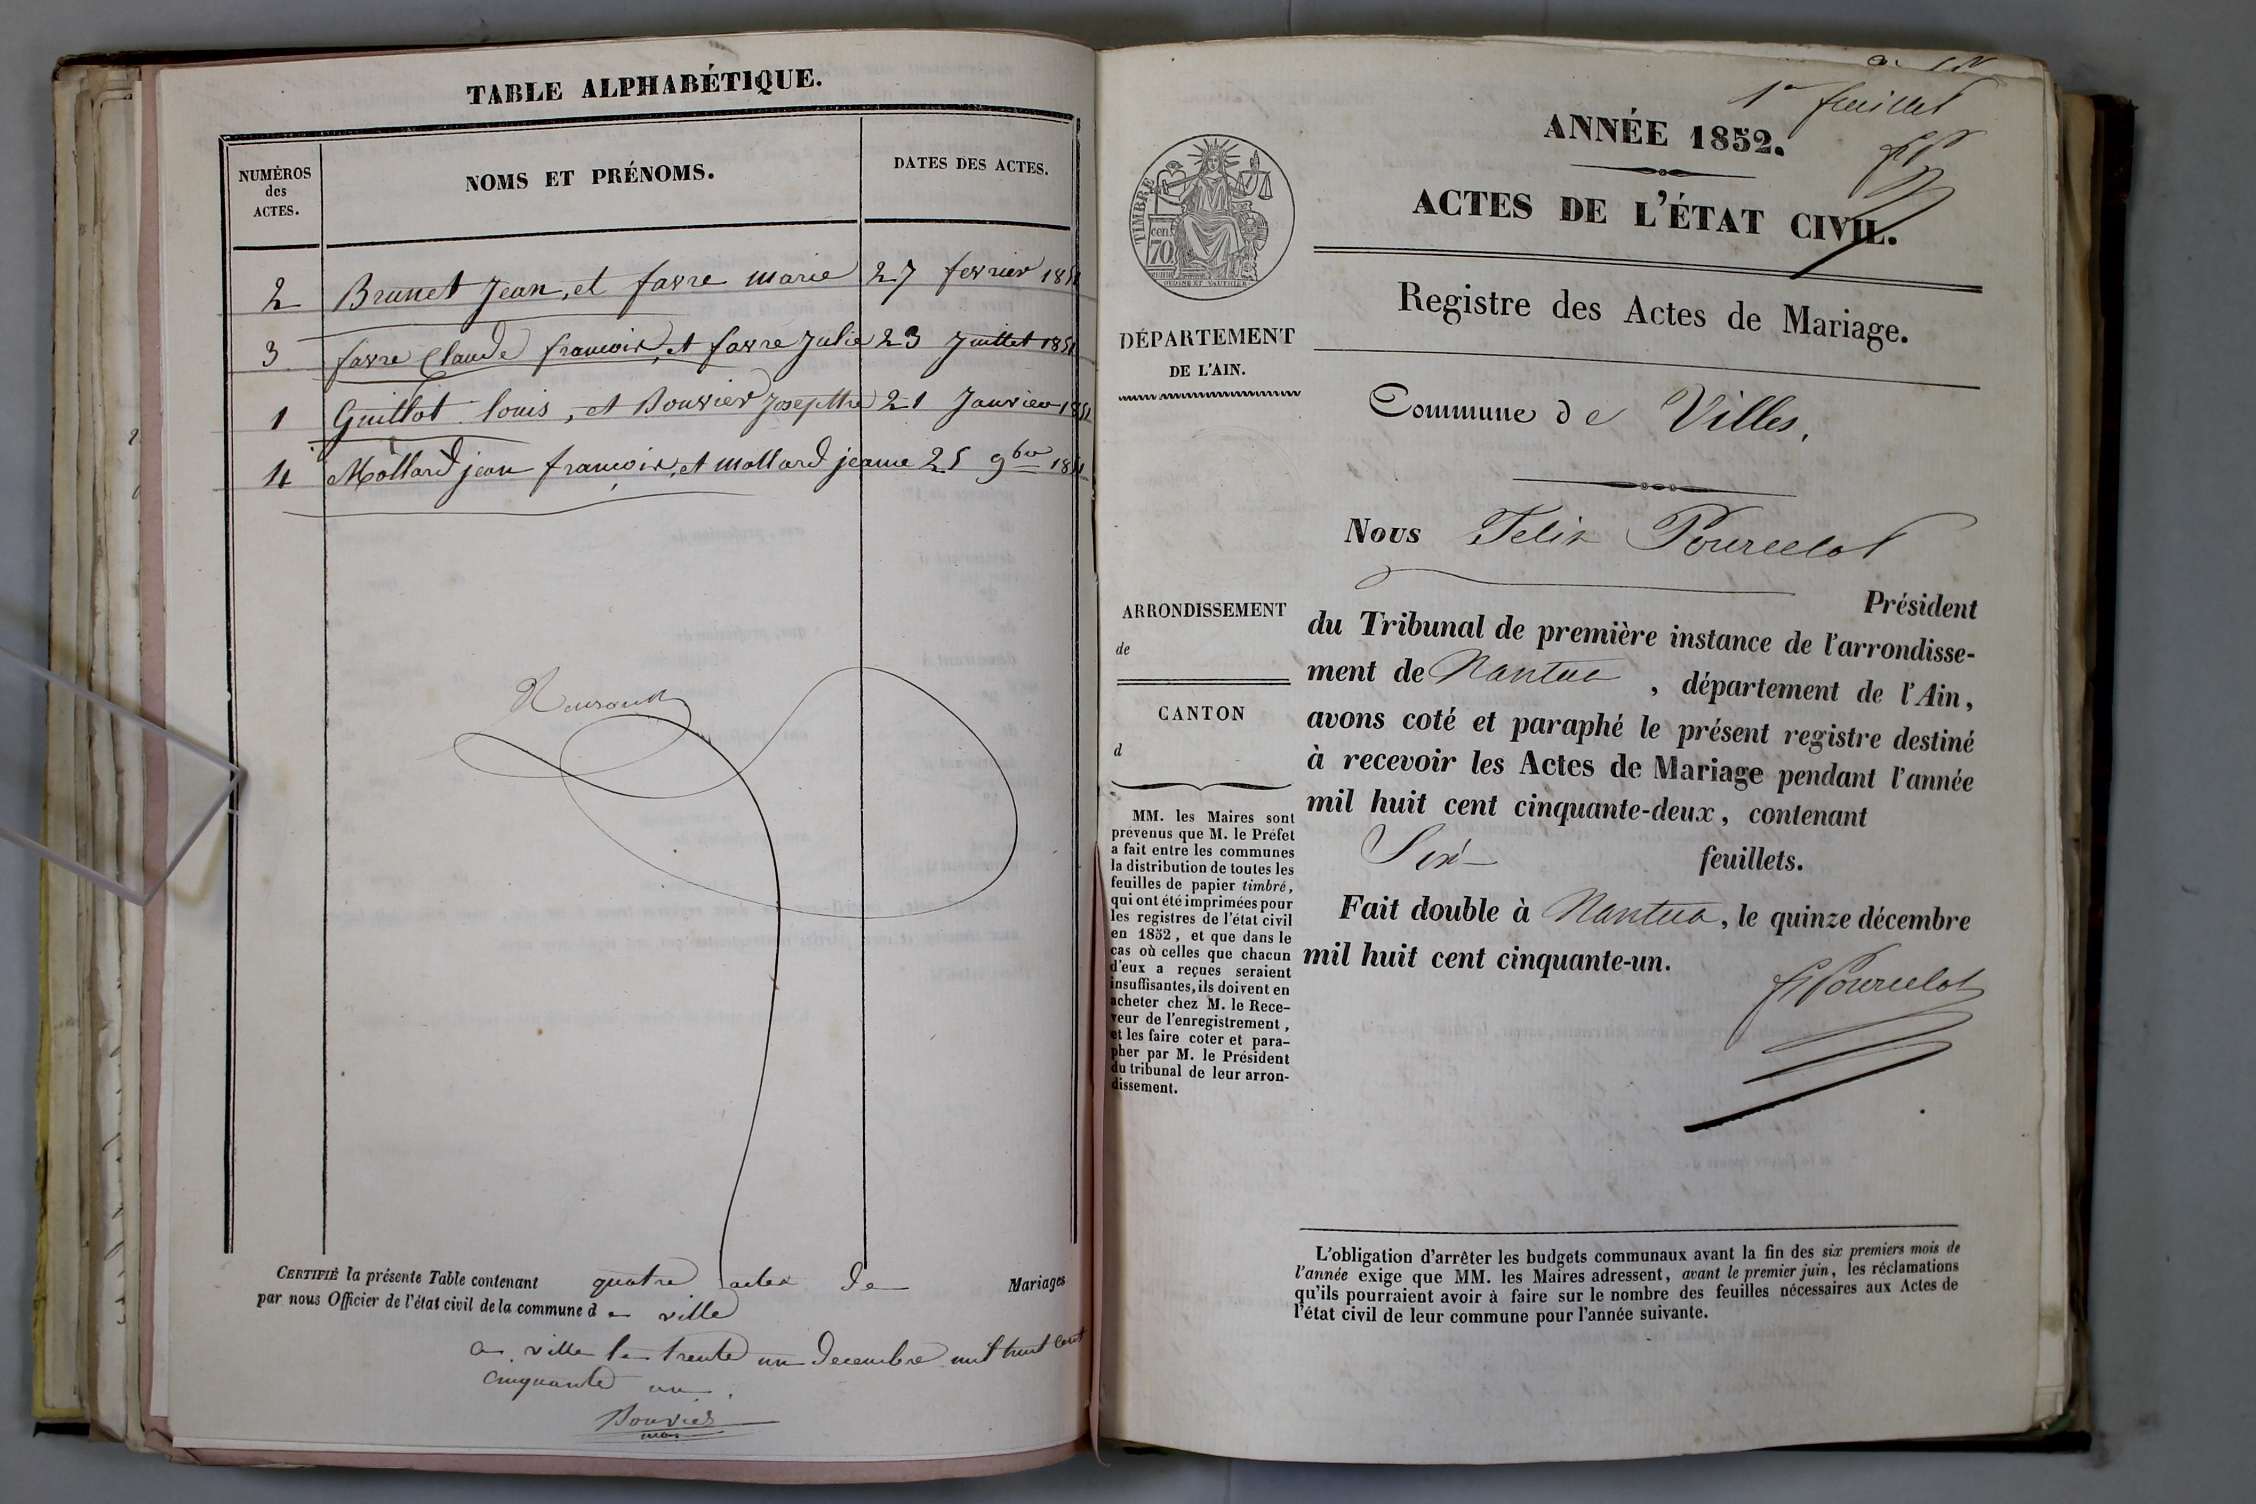 TABLE ALPHABÉTIQUE.
NUMÉROS
des
ACTES.
NOMS ET PRÉNOMS.
DATES DES ACTES.
2 Brunet Jean, et favre marie 27 fevrier 1851
3 favre Claude francois, et favre Julie 23 Juillet 1851
1 Guillot louis, et Bouvier Josepthe 21 Janvier 1851
4 Mollard jean francois, et mollard jeanne 25 9bre 1851
CERTIFIÉ la présente Table contenant quatre actes de Mariages
par nous Officier de l'état civil de la commune de ville
a ville le trente un decembre mil huit cent
cinquante un.
Bouvier
1er feuillet
ANNÉE 1852.
ACTES DE L'ÉTAT CIVIL.
Registre des Actes de Mariage.
TIMBRE
70
cen.
DÉPARTEMENT
DE L'AIN.
Commune de Villes.
Nous Felix Pourcelot
Président
du Tribunal de première instance de l'arrondisse-
ment de Nantua, département de l'Ain,
avons coté et paraphé le présent registre destiné
à recevoir les Actes de Mariage pendant l'année
mil huit cent cinquante-deux, contenant
Six feuillets.
Fait double à Nantua, le quinze décembre
mil huit cent cinquante-un.
F Pourcelot
ARRONDISSEMENT
de
CANTON
d
MM. les Maires sont
prévenus que M. le Préfet
a fait entre les communes
la distribution de toutes les
feuilles de papier timbré,
qui ont été imprimées pour
les registres de l'état civil
en 1852, et que dans le
cas où celles que chacun
d'eux a reçues seraient
insuffisantes, ils doivent en
acheter chez M. le Rece-
veur de l'enregistrement,
et les faire coter et para-
pher par M. le Président
du tribunal de leur arron-
dissement.
L'obligation d'arrêter les budgets communaux avant la fin des six premiers mois de
l'année exige que MM. les Maires adressent, avant le premier juin, les réclamations
qu'ils pourraient avoir à faire sur le nombre des feuilles nécessaires aux Actes de
l'état civil de leur commune pour l'année suivante.